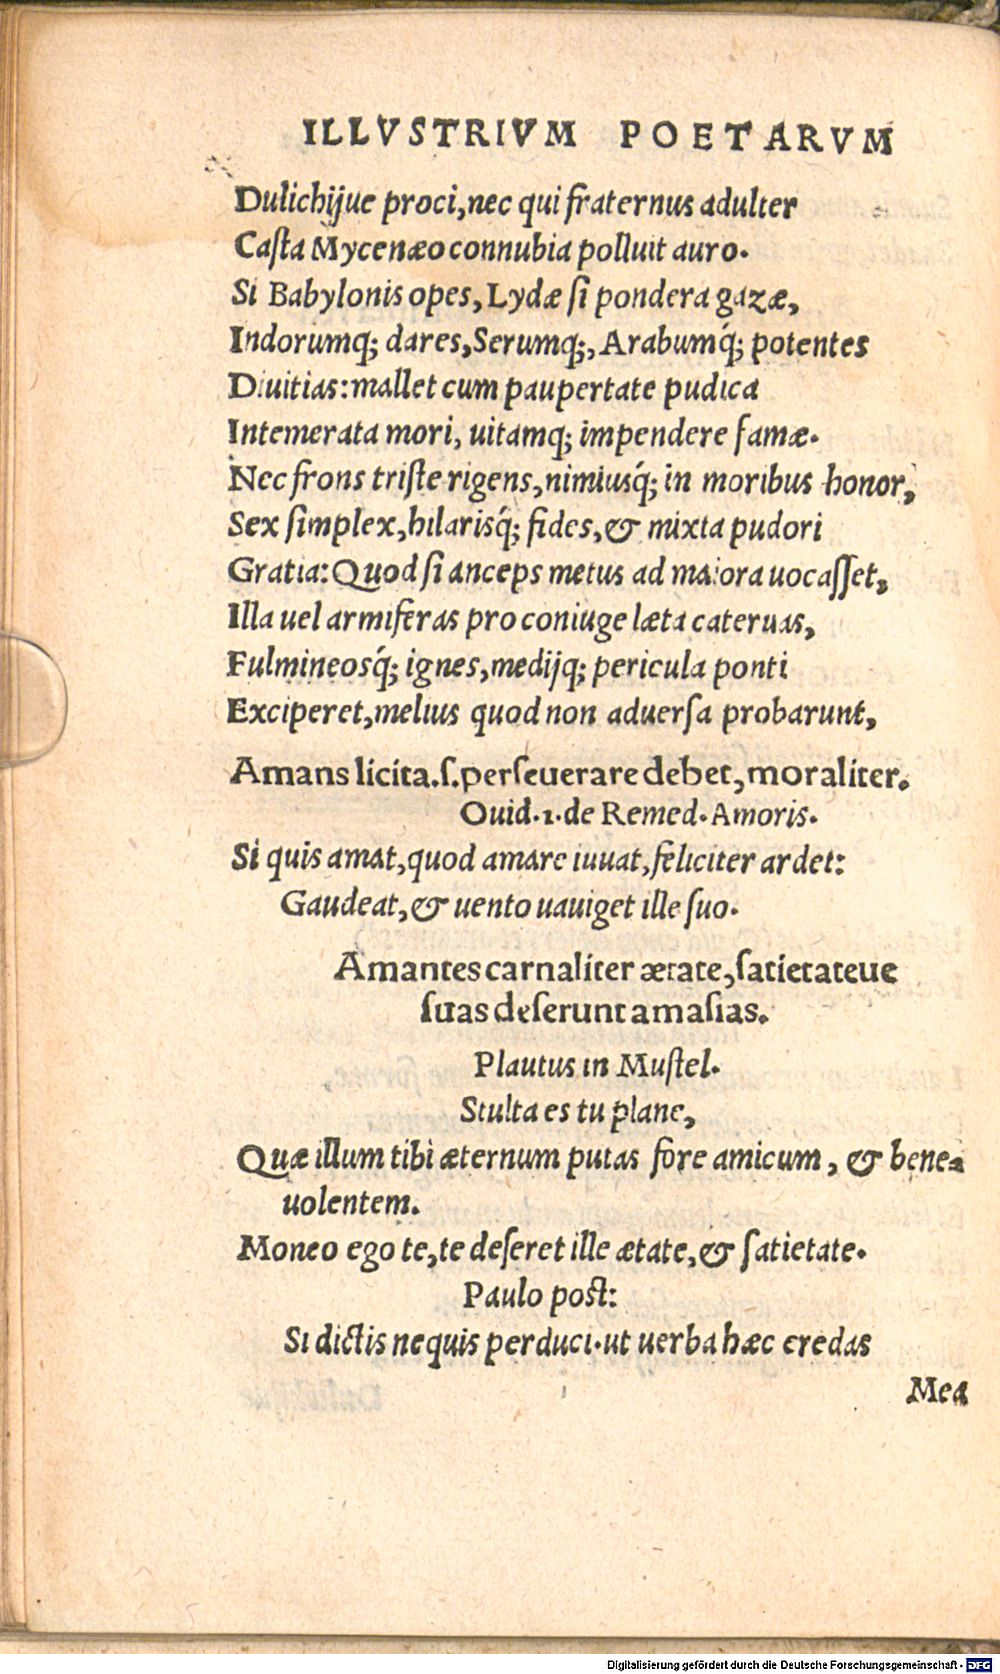 ILLVSTRIVM POETARVM
Dulichijue proci, nec qui fraternus adulter
Casta Mycenæo connubia polluit auro.
Si Babylonis opes, Lydæ si pondera gazæ,
Indorumq; dares, Serumq;, Arabumq́; potentes
Diuitias: mallet cum paupertate pudica
Intemerata mori, uitamq; impendere famæ.
Nec frons triste rigens, nimiusq́; in moribus honor,
Sex simplex, hilarisq́; fides, & mixta pudori
Gratia: Quod si anceps metus ad maiora uocasset,
Illa uel armiferas pro coniuge læta cateruas,
Fulmineosq́; ignes, medijq; pericula ponti
Exciperet, melius quod non aduersa probarunt,
Amans licita.s. perseuerare debet, moraliter.
Ouid.1.de Remed. Amoris.
Si quis amat, quod amare iuuat, feliciter ardet:
Gaudeat, & uento uauiget ille suo.
Amantes carnaliter ætate, satietateue
suas deserunt amasias.
Plautus in Mustel.
Stulta es tu plane,
Quæ illum tibi æternum putas fore amicum, & bene-
uolentem.
Moneo ego te, te deseret ille ætate, & satietate.
Paulo post:
Si dictis nequis perduci. ut uerba hæc credas
Mea
Digitalisierung gefördert durch die Deutsche Forschungsgemeinschaft - DFG